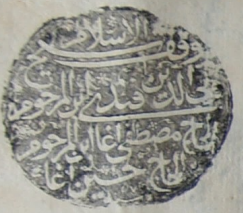 الاسلام
وقف شيخ
خالد افندى ابن المرحوم
الحاج مصطفى اغا ابن المرحوم
الحاج حسين اغا